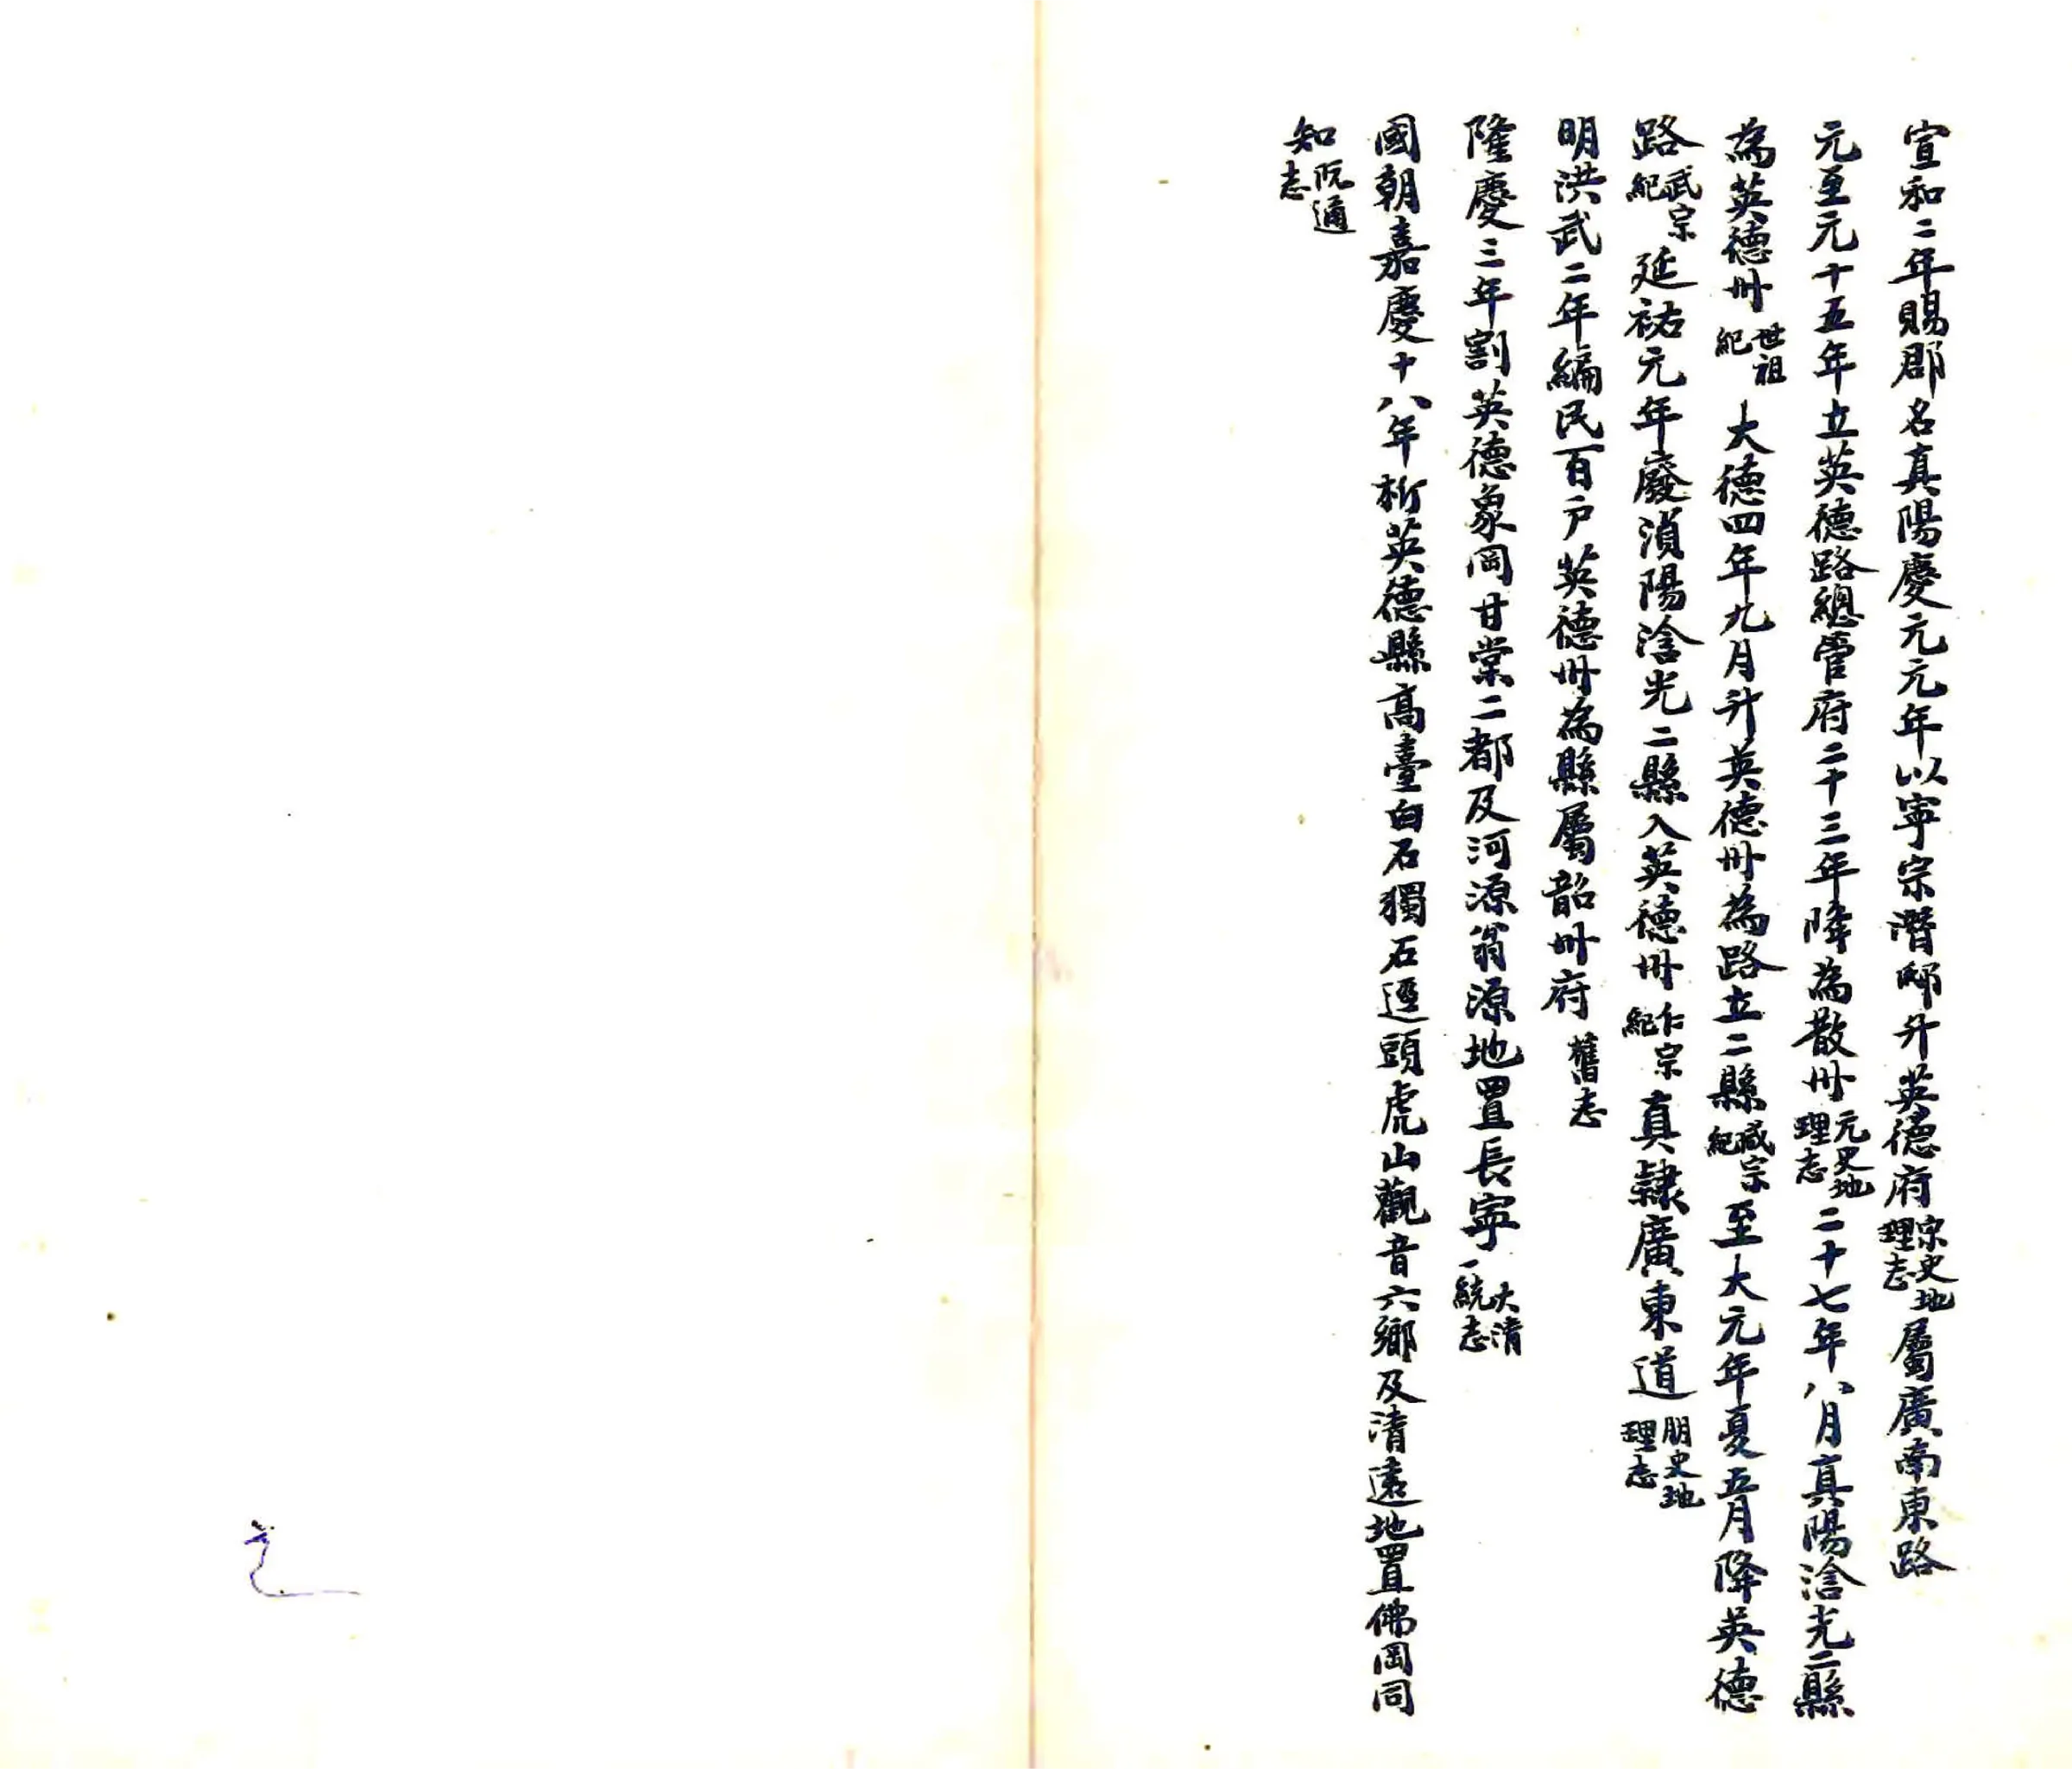 宣和二年賜郡名真陽慶元元年以寧宗潛邸升英德府宗史地理志屬廣南東路
元至元十五年立英德路總管府二十三年降為散州元史地理志二十七年八月真陽浛光二縣
為英德州世祖紀大德四年九月升英德州為路立二縣成宗紀至大元年夏五月降英德
路武宗紀延祐元年廢湞陽浛光二縣入英德州仁宗紀真隸廣東道朋史地理志
明洪武二年編民百戶英德州為縣屬韶州府舊志
隆慶三年割英德象岡甘棠二都及河源翁源地置長寧大清一統志
國朝嘉慶十八年析英德縣高臺白石獨石逕頭虎山觀音六鄉及清遠地置佛岡同
知阮通志